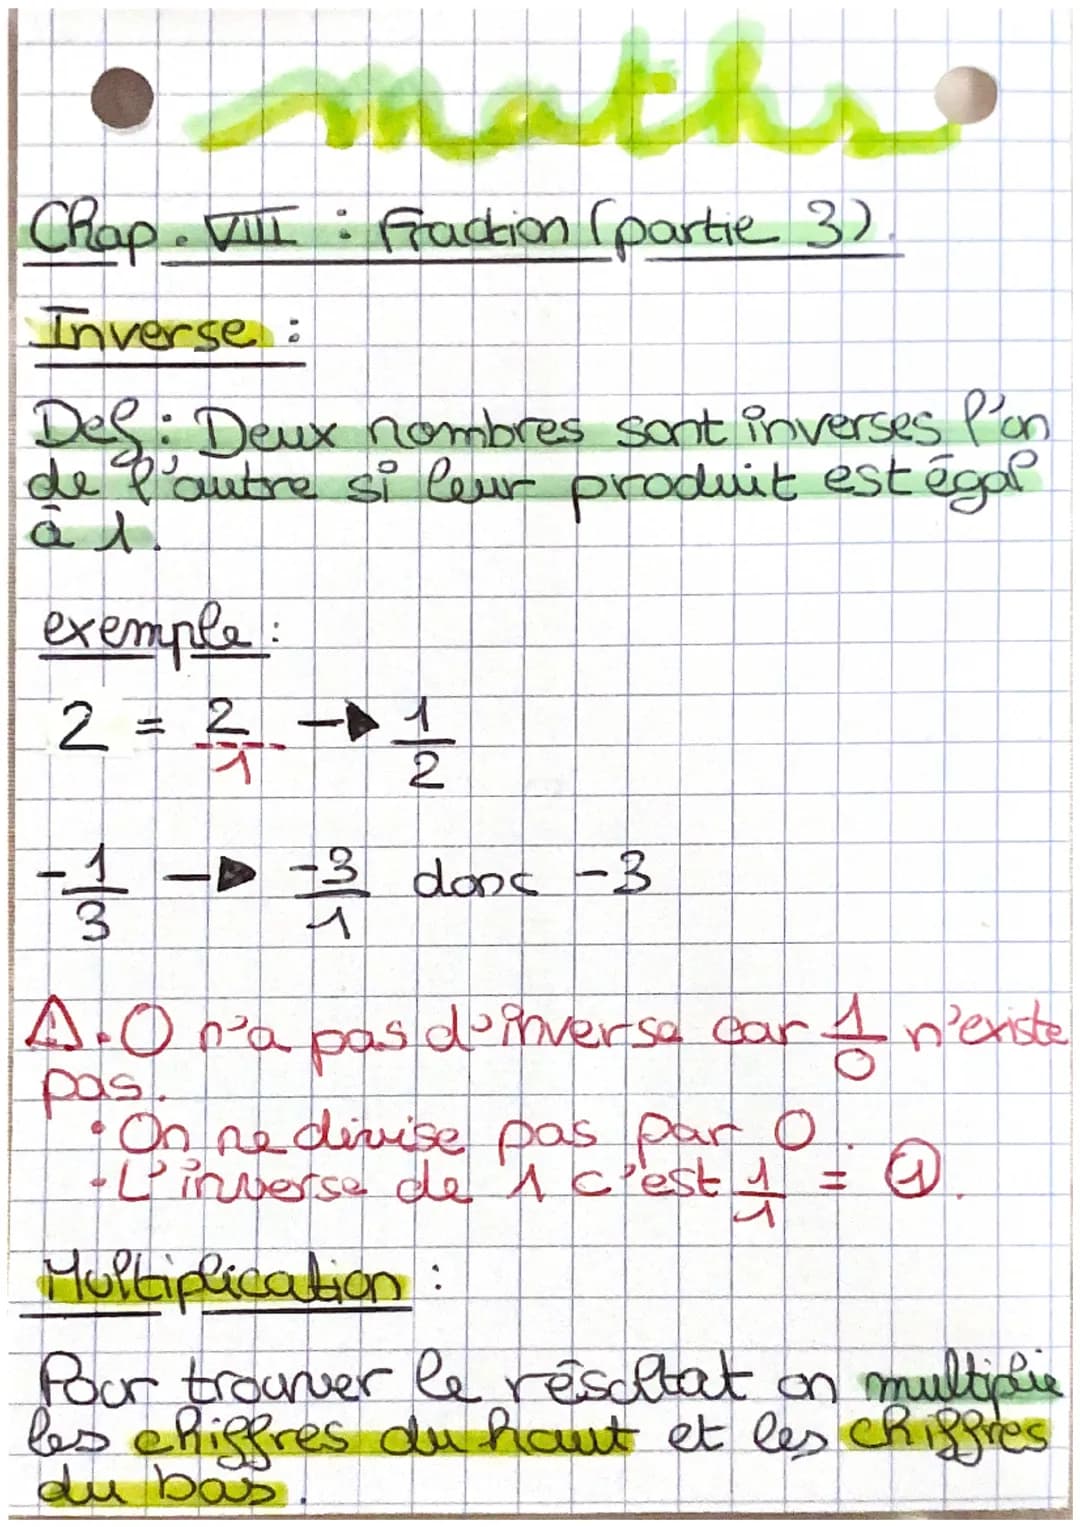 maths
Chap. VIII : Fraction (partie 3).
Inverse :
Def : Deux nombres sont inverses l'un
de l'autre si leur produit est égal
à 1.
exemple :
2 = 2/1 → 1/2
-1/3 → -3/1 donc -3
⚠ • 0 n'a pas d'inverse car 1/0 n'existe
pas.
• On ne divise pas par 0.
• L'inverse de 1 c'est 1/1 = 1.
Multiplication :
Pour trouver le résultat on multiplie
les chiffres du haut et les chiffres
du bas.